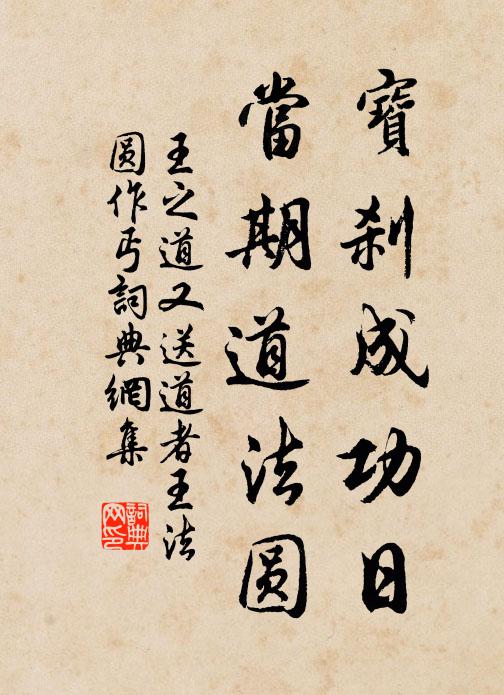 寶刹成功日
當期道法圓
王之道又送道者王法
圓作丐詞典網集
詞典
网印